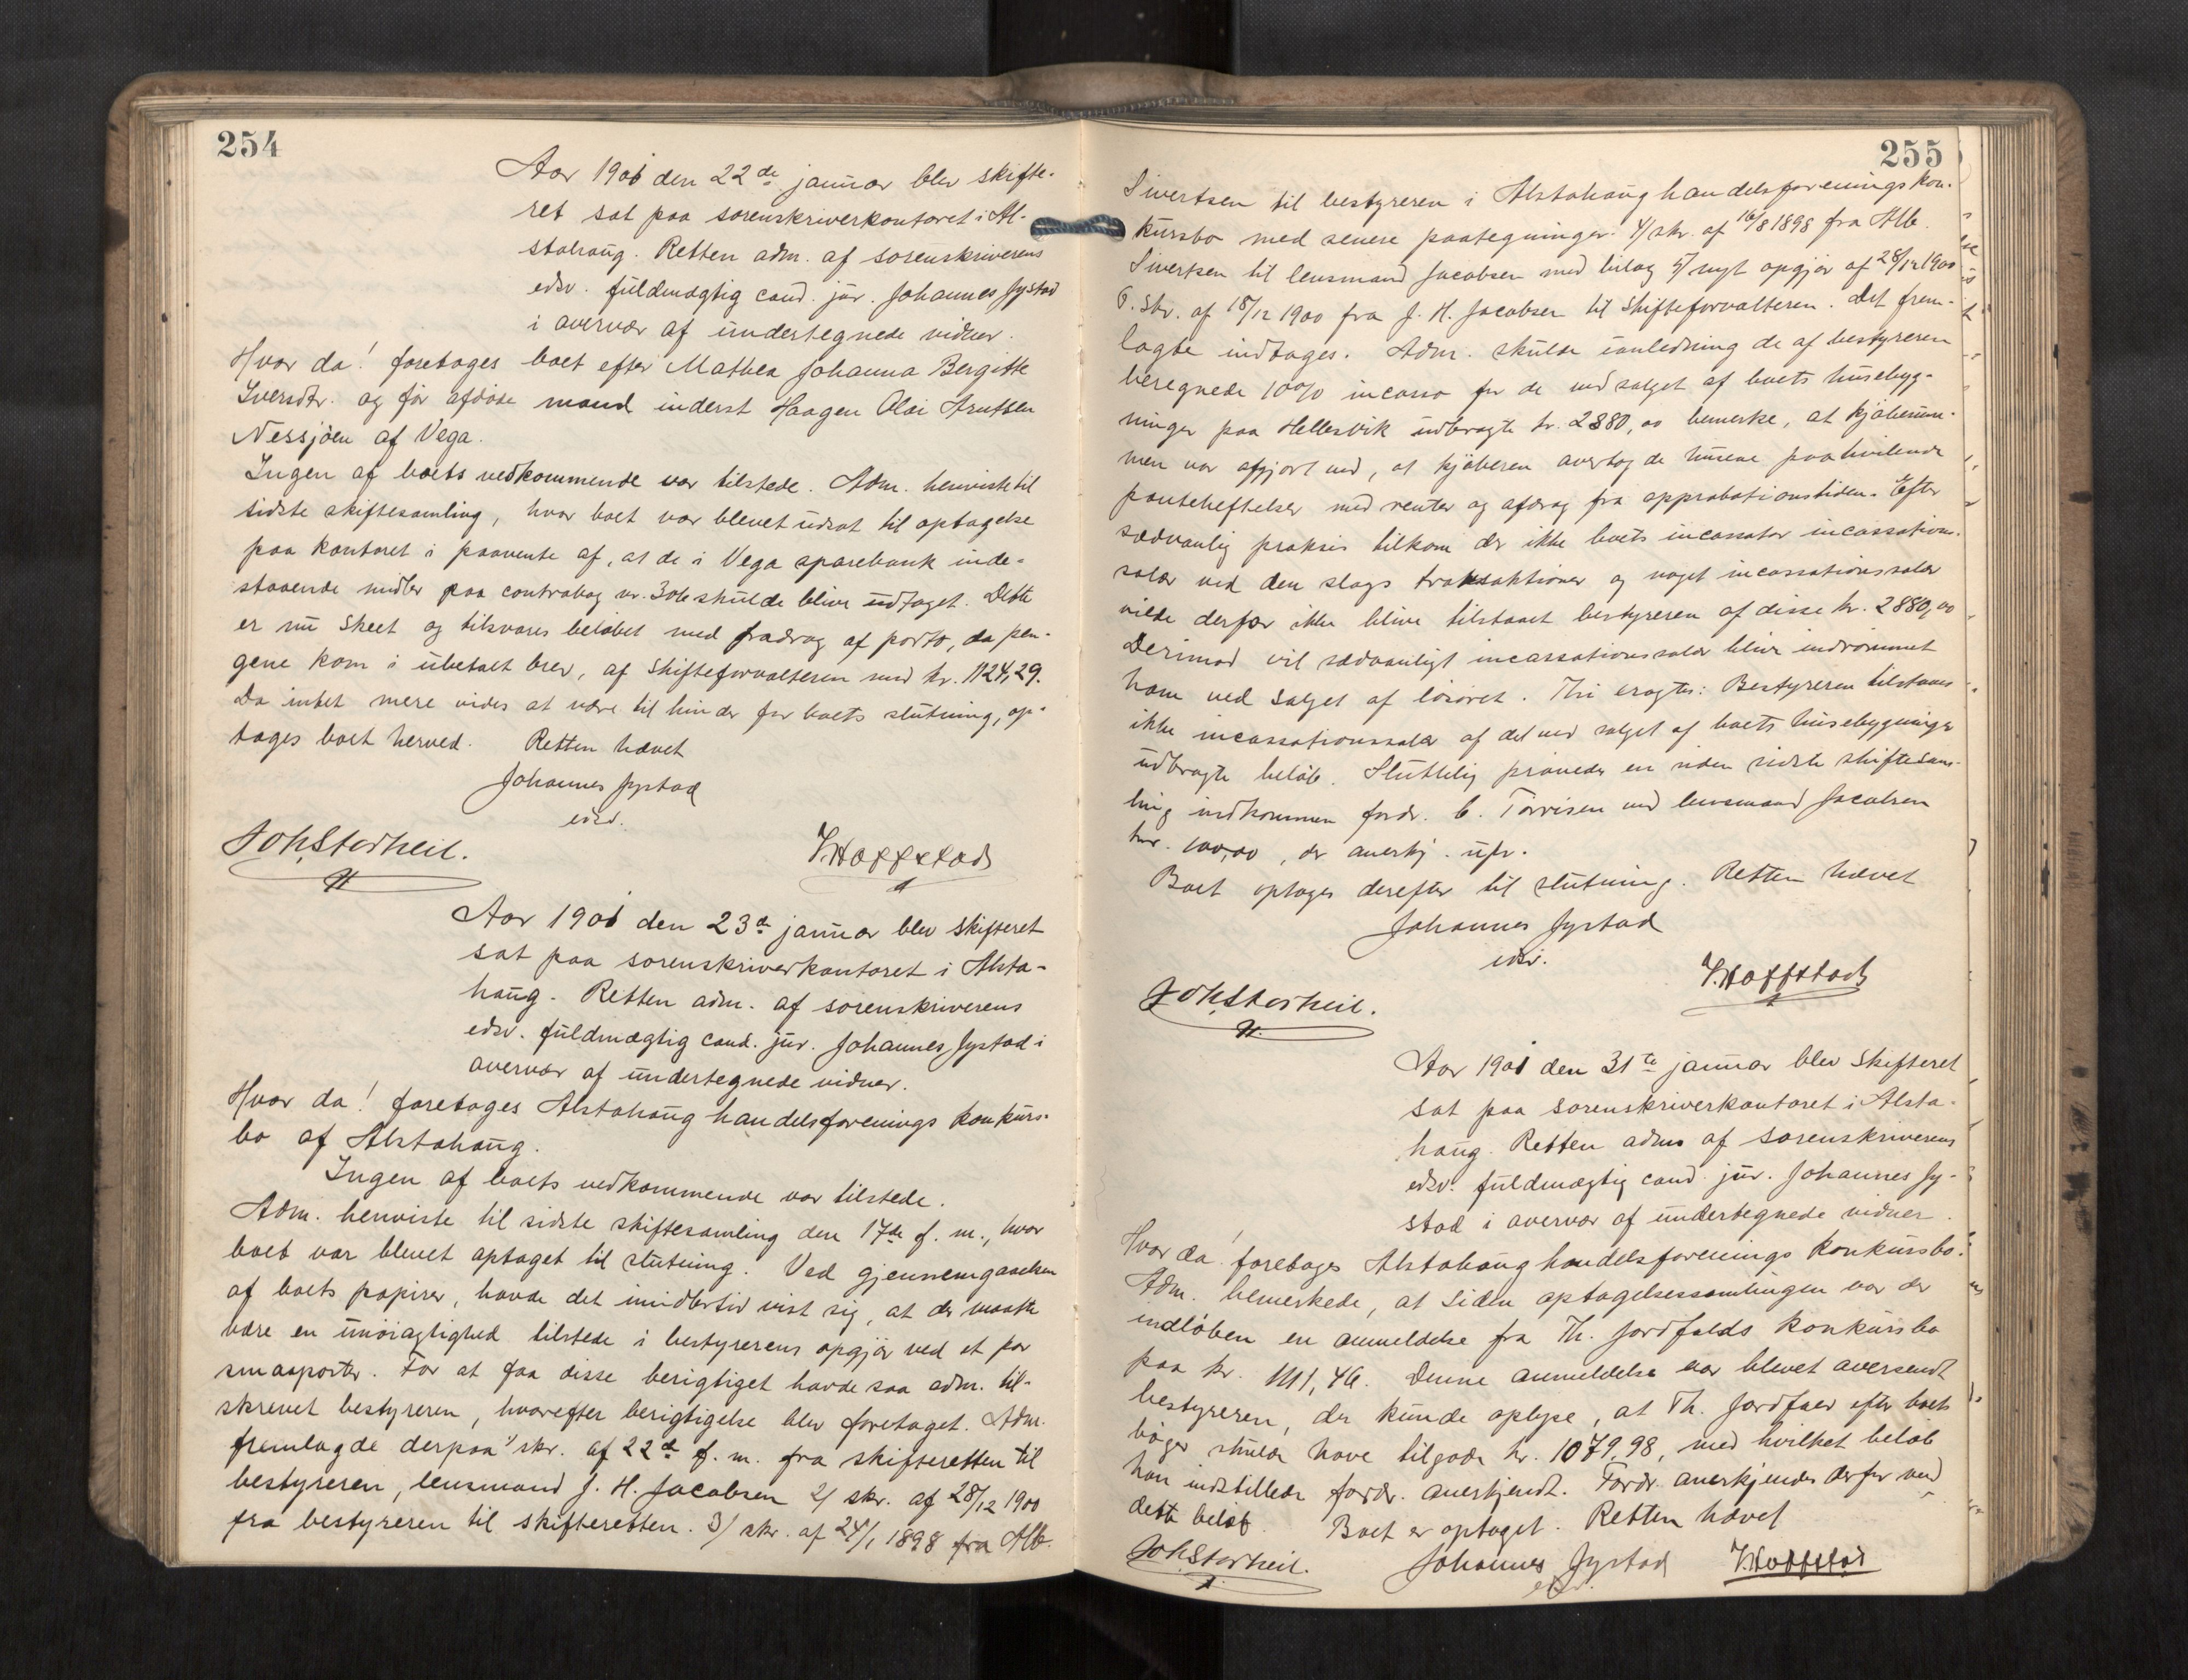 254
Aar 1901 den 22de januar blev skifte-
ret sat paa sorenskriverkontoret i Al-
stahaug. Retten adm. af sorenskriverens
edsv. fuldmægtig cand. jur. Johannes Jystad
i overvær af undertegnede vidner.
Hvor da! foretages boet efter Mathea Johanna Bergitte
Iversdtr. og før afdøde mand inderst Haagen Olai Arntsen
Nessjøen af Vega.
Ingen af boets vedkommende var tilstede. Adm. henviste til
sidste skiftesamling, hvor boet var blevet udsat til optagelse
paa kontoret i paavente af, at de i Vega sparebank inde-
staaende midler paa contrabog nr. 306 skulde blive udtaget. Dette
er nu skeet og tilsvares beløbet med fradrag af porto, da pen-
gene kom i ubetalt brev, af skifteforvalteren med kr. 1124,29.
Da intet mere vides at være til hinder for boets slutning, op-
tages boet herved. Retten hævet
Johannes Jystad
edsv.
Joh. Storheil. V. Hoffstad
Aar 1901 den 23de januar blev skifteret
sat paa sorenskriverkontoret i Alsta-
haug. Retten adm. af sorenskriverens
edsv. fuldmægtig cand. jur. Johannes Jystad i
overvær af undertegnede vidner.
Hvor da! foretages Alstahaug handelsforenings konkurs-
bo af Alstahaug.
Ingen af boets vedkommende var tilstede.
Adm. henviste til sidste skiftesamling den 17de f. m., hvor
boet var blevet optaget til slutning. Ved gjennemgaaelsen
af boets papirer, havde det imidlertid vist sig, at der maatte
være en unøiagtighed tilstede i bestyrerens opgjør ved et par
smaaposter. For at faa disse berigtiget havde saa adm. til-
skrevet bestyreren, hvorefter berigtigelse blev foretaget. Adm.
fremlagde derpaa 1/ skr. af 22de f. m. fra skifteretten til
bestyreren, lensmand J. H. Jacobsen 2/ skr. af 28/12 1900
fra bestyreren til skifteretten. 3/ skr. af 24/1 1898 fra Alb.
255
Sivertsen til bestyreren i Alstahaug handelsforenings kon-
kursbo med senere paategninger. 4/ skr. af 16/8 1898 fra Alb.
Sivertsen til lensmand Jacobsen med bilag 5/ nyt opgjør af 28/12 1900
6. skr. af 18/12 1900 fra J. H. Jacobsen til skifteforvalteren. Det frem-
lagte indtages. Adm. skulde ianledning de af bestyreren
beregnede 10% incasso for de ved salget af boets husebyg-
ninger paa Hellesvik udbragte kr. 2880,00 bemerke, at kjøbesum-
men var afgjort ved, at kjøberen overtog de husene paahvilende
panteheftelser med renter og afdrag fra approbationstiden. Efter
sædvanlig praksis tilkom der ikke boets incassator incassations-
salær ved den slags transaktioner og noget incassationssalær
vilde derfor ikke blive tilstaaet bestyreren af disse kr. 2880,00
Derimod vil sædvanligt incassationssalær blive indrømmet
ham ved salget af løsøret. Thi eragtes: Bestyreren tilstaaes
ikke incassationssalær af det ved salget af boets husebygninger
udbragte beløb. Sluttelig prøvedes en siden sidste skiftesam-
ling indkommen fordr. C. Torrisen ved lensmand Jacobsen
kr. 100,00, der anerkj. upr.
Boet optages derefter til slutning. Retten hævet
Johannes Jystad
edsv.
Joh. Storheil. V. Hoffstad
Aar 1901 den 31te januar blev skifteret
sat paa sorenskriverkontoret i Alsta-
haug. Retten adm. af sorenskriverens
edsv. fuldmægtig cand. jur. Johannes Jy-
stad i overvær af undertegnede vidner.
Hvor da! foretages Alstahaug handelsforenings konkursbo.
Adm. bemerkede, at siden optagelsessamlingen var der
indløben en anmeldelse fra Th. Jordfalds konkursbo
paa kr. 1111,46. Denne anmeldelse var blevet oversendt
bestyreren, der kunde oplyse, at Th. Jordfald efter boets
bøger skulde have tilgode kr. 1079,98, med hvilket beløb
han indstillede fordr. anerkjendt. Fordr. anerkjendes derfor ved
dette beløb. Boet er optaget. Retten hævet
Joh. Storheil. Johannes Jystad V. Hoffstad
edsv.